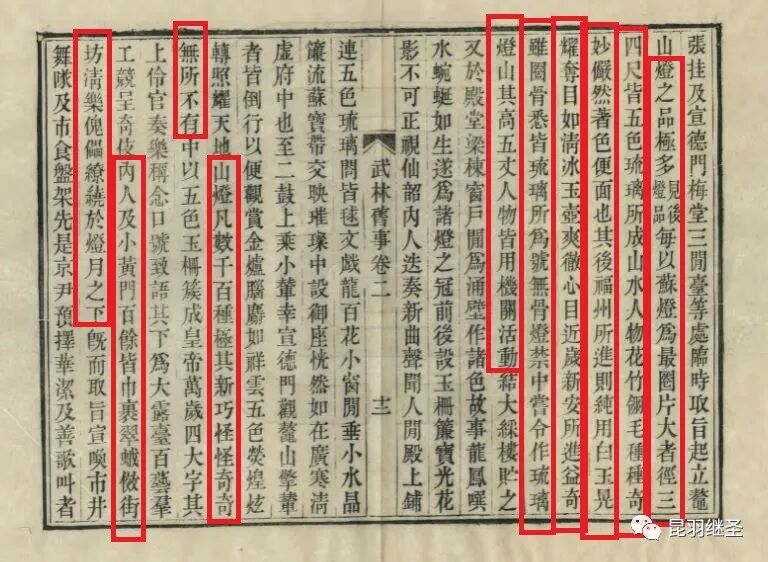 張挂及宣德門梅堂三閒臺等處臨時取旨起立鼇
山燈之品極多見後燈品每以蘇燈爲最圈片大者徑三
四尺皆五色琉璃所成山水人物花竹翎毛種種奇
妙儼然著色便面也其後福州所進則純用白玉晃
耀奪目如清冰玉壺爽徹心目近歲新安所進益奇
雖圈骨悉皆琉璃所爲號無骨燈禁中嘗令作琉璃
燈山其高五丈人物皆用機關活動結大綵樓貯之
又於殿堂梁棟窗戶閒爲涌壁作諸色故事龍鳳噀
水蜿蜒如生遂爲諸燈之冠前後設玉柵簾寶光花
影不可正視仙韶內人迭奏新曲聲聞人閒殿上鋪
武林舊事卷二
十二
連五色琉璃閣皆毬文戲龍百花小窗閒垂小水晶
簾流蘇寶帶交映璀璨中設御座恍然如在廣寒清
虛府中也至二鼓上乘小輦幸宣德門觀鼇山擎輦
者皆倒行以便觀賞金爐腦麝如祥雲五色熒煌炫
轉照耀天地山燈凡數千百種極其新巧怪怪奇奇
無所不有中以五色玉柵簇成皇帝萬歲四大字其
上伶官奏樂稱念口號致語其下爲大露臺百藝羣
工競呈奇伎內人及小黃門百餘皆巾裹翠蛾傚街
坊清樂傀儡繚繞於燈月之下既而取旨宣喚市井
舞隊及市食盤架先是京尹預擇華潔及善歌叫者
昆羽继圣